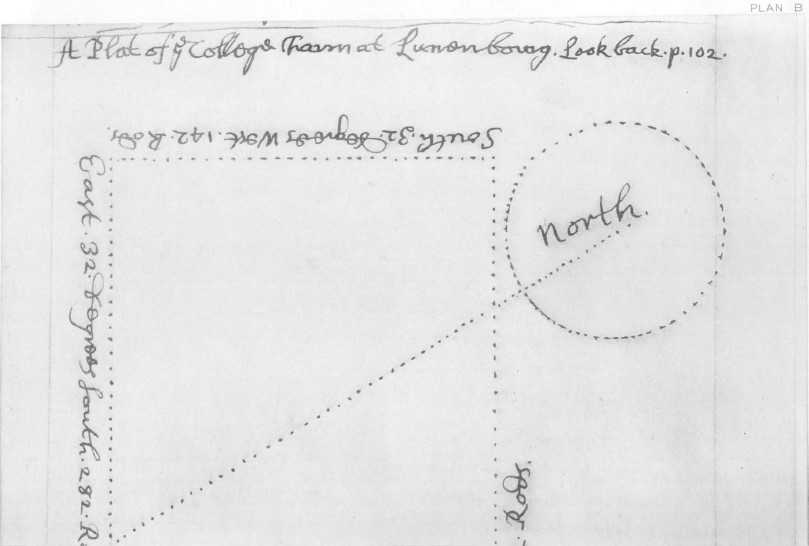 PLAN B
A Plat of ye College Farm at Lunenbourg. Look back. p. 102.
South. 32. Degrees West. 142. Rods.
East. 32. Degrees South. 282 R
North.
. Rods.